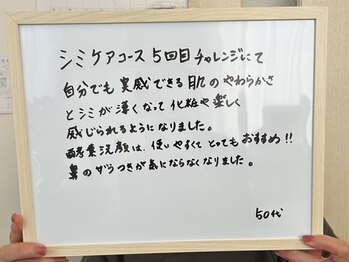 シミケアコース 5回目チャレンジにて
自分でも実感できる肌のやわらかさ
とシミが薄くなって化粧や楽しく
感じられるようになりました。
酵素洗顔は、使いやすくてとってもおすすめ!!
鼻のザラつきが気にならなくなりました。
50代